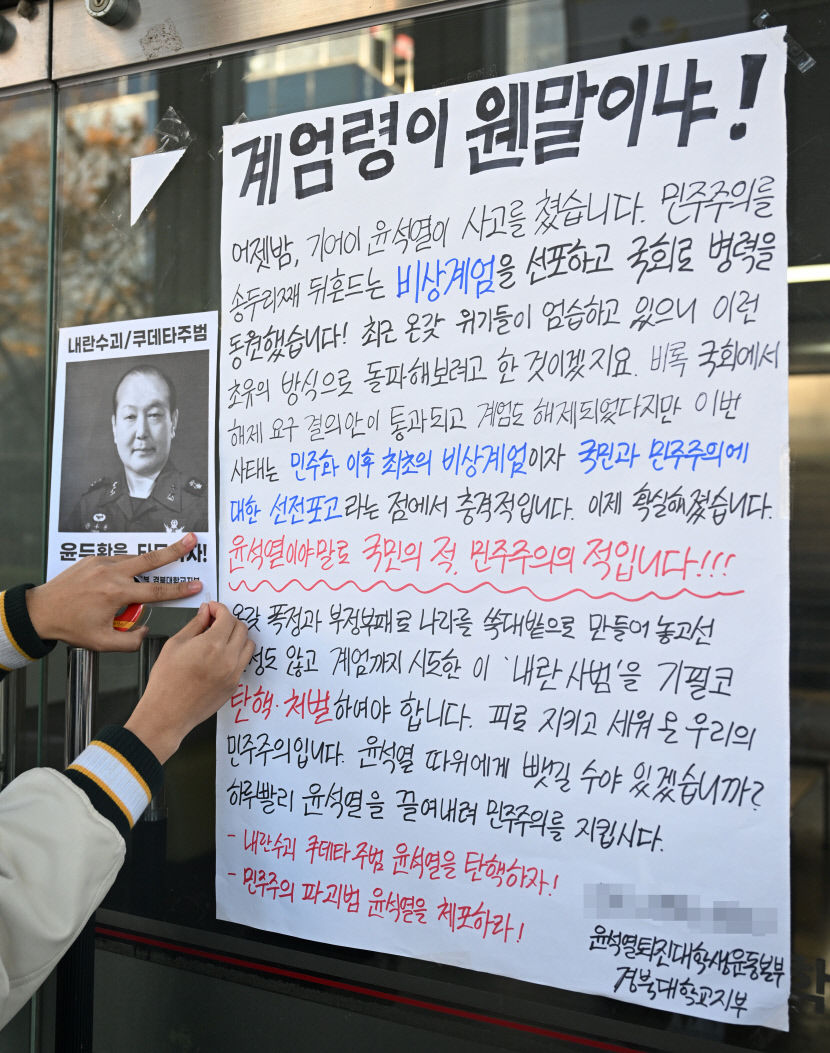 계엄령이 웬말이냐!
어젯밤, 기어이 윤석열이 사고를 쳤습니다. 민주주의를
송두리째 뒤흔드는 비상계엄을 선포하고 국회로 병력을
동원했습니다! 최근 온갖 위기들이 엄습하고 있으니 이런
초유의 방식으로 돌파해보려고 한 것이겠지요. 비록 국회에서
해제 요구 결의안이 통과되고 계엄도 해제되었다지만 이번
사태는 민주화 이후 최초의 비상계엄이자 국민과 민주주의에
대한 선전포고라는 점에서 충격적입니다. 이제 확실해졌습니다.
윤석열이야말로 국민의 적, 민주주의의 적입니다!!!
온갖 폭정과 부정부패로 나라를 쑥대밭으로 만들어 놓고선
않고 계엄까지 시도한 이 '내란 사범'을 기필코
탄핵·처벌하여야 합니다. 피로 지키고 세워 온 우리의
민주주의입니다. 윤석열 따위에게 뺏길 수야 있겠습니까?
하루빨리 윤석열을 끌어내려 민주주의를 지킵시다.
- 내란수괴 쿠데타 주범 윤석열을 탄핵하자!
- 민주주의 파괴범 윤석열을 체포하라!
윤석열퇴진대학생운동본부
경북대학교지부
내란수괴/쿠데타주범
윤두환을
경북대학교지부